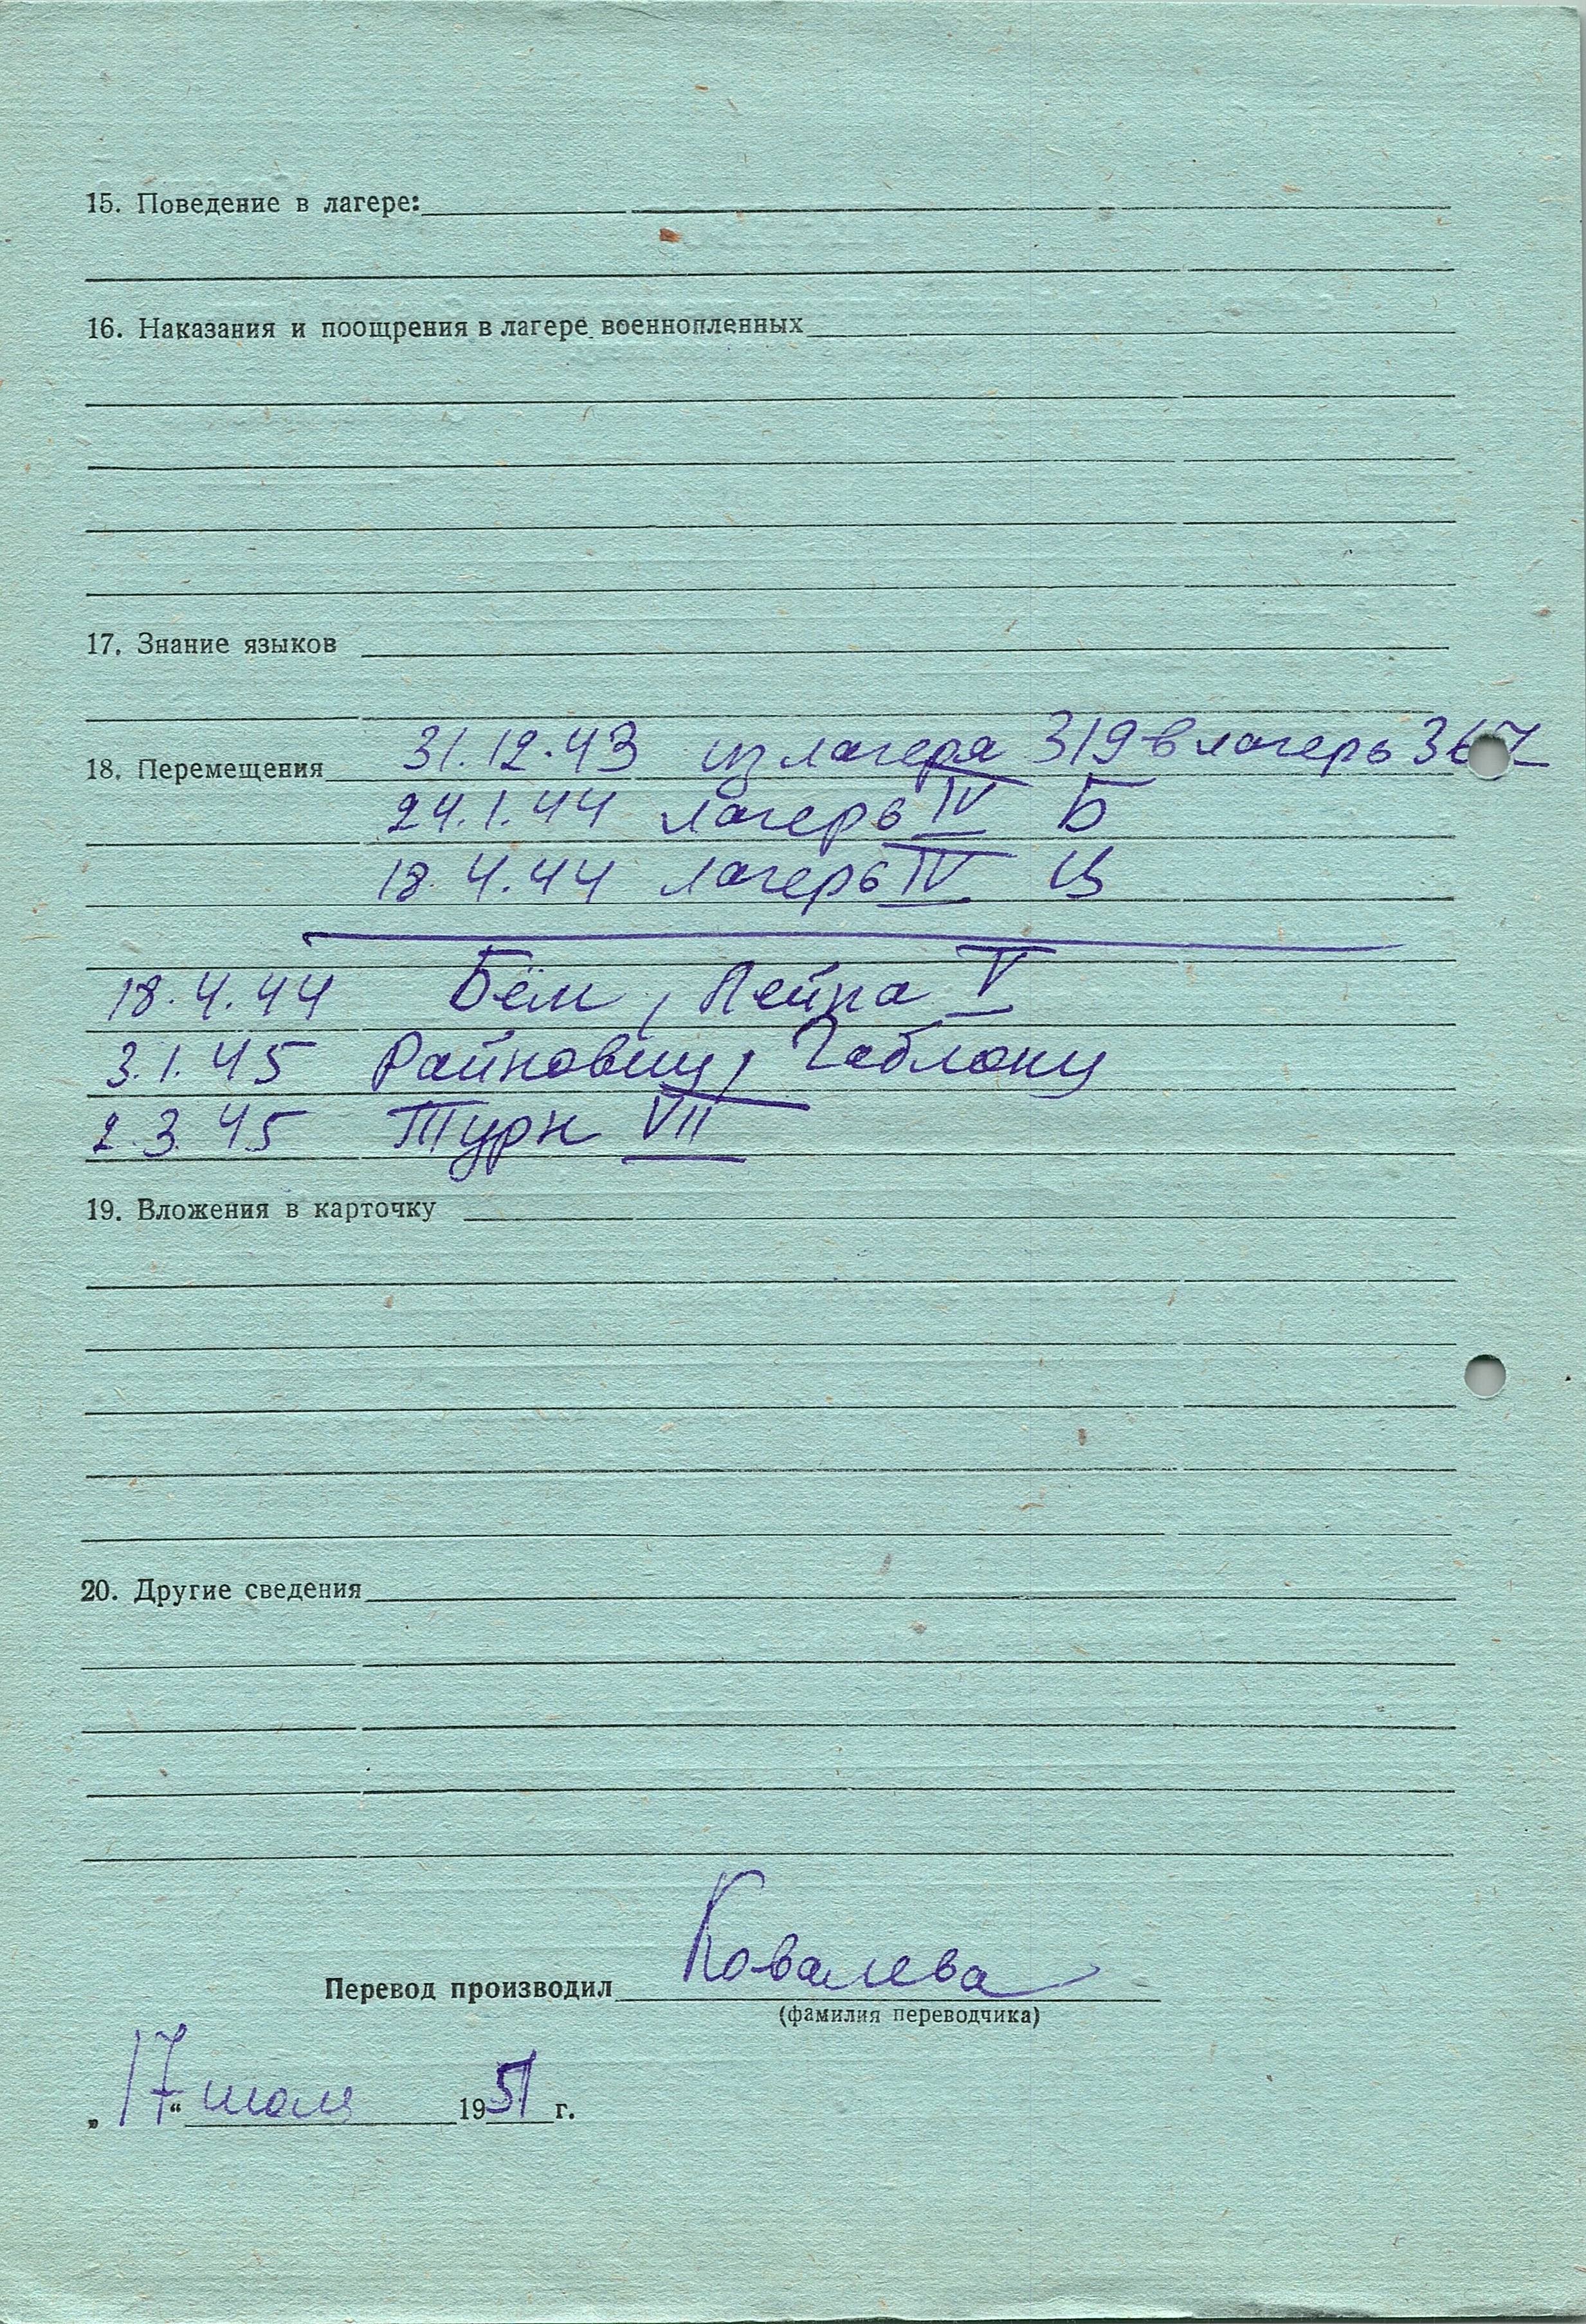 15. Поведение в лагере:
16. Наказания и поощрения в лагере военнопленных
17. Знание языков
18. Перемещения 31.12.43 из лагеря 319 в лагерь 367
24.1.44 лагерь IV Б
18.4.44 лагерь IV Ц
18.4.44 Бём, Лейпа V
3.1.45 Райновиц, Габлонц
2.3.45 Турн VII
19. Вложения в карточку
20. Другие сведения
Перевод производил Ковалева
(фамилия переводчика)
„17“ июля 1951 г.